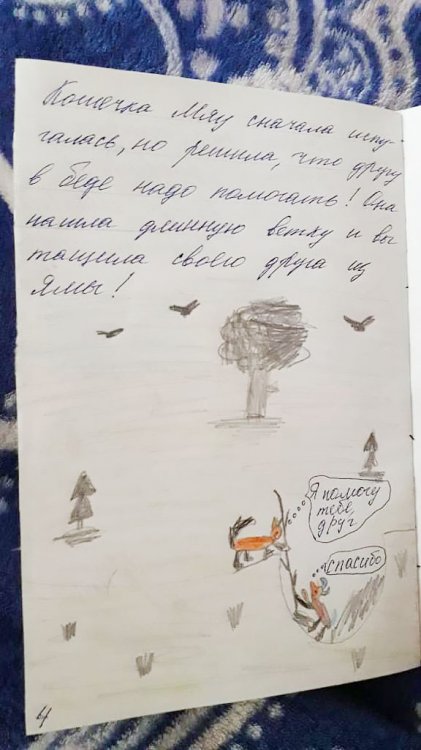 Кошечка Мяу сначала испу-
галась, но решила, что другу
в беде надо помогать! Она
нашла длинную ветку и вы
тащила своего друга из
ямы!
Я помогу
тебе,
друг
спасибо
4